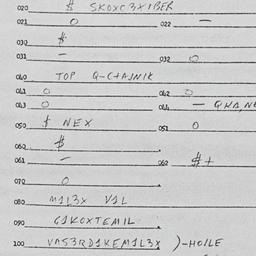 020 $ SKOXC3XIBER
021 0 022 –
030 $
031 – 032 0
040 TOP Q-C+AJNIK
041 0 042 0
043 0 044 –
050 $ NEX 051 0
060 $
061 – 062 $+
070 0
080 M1L3X V1L
090 G1KOXTEMIL
100 VAS3RD1KEM1L3X )-HOILE